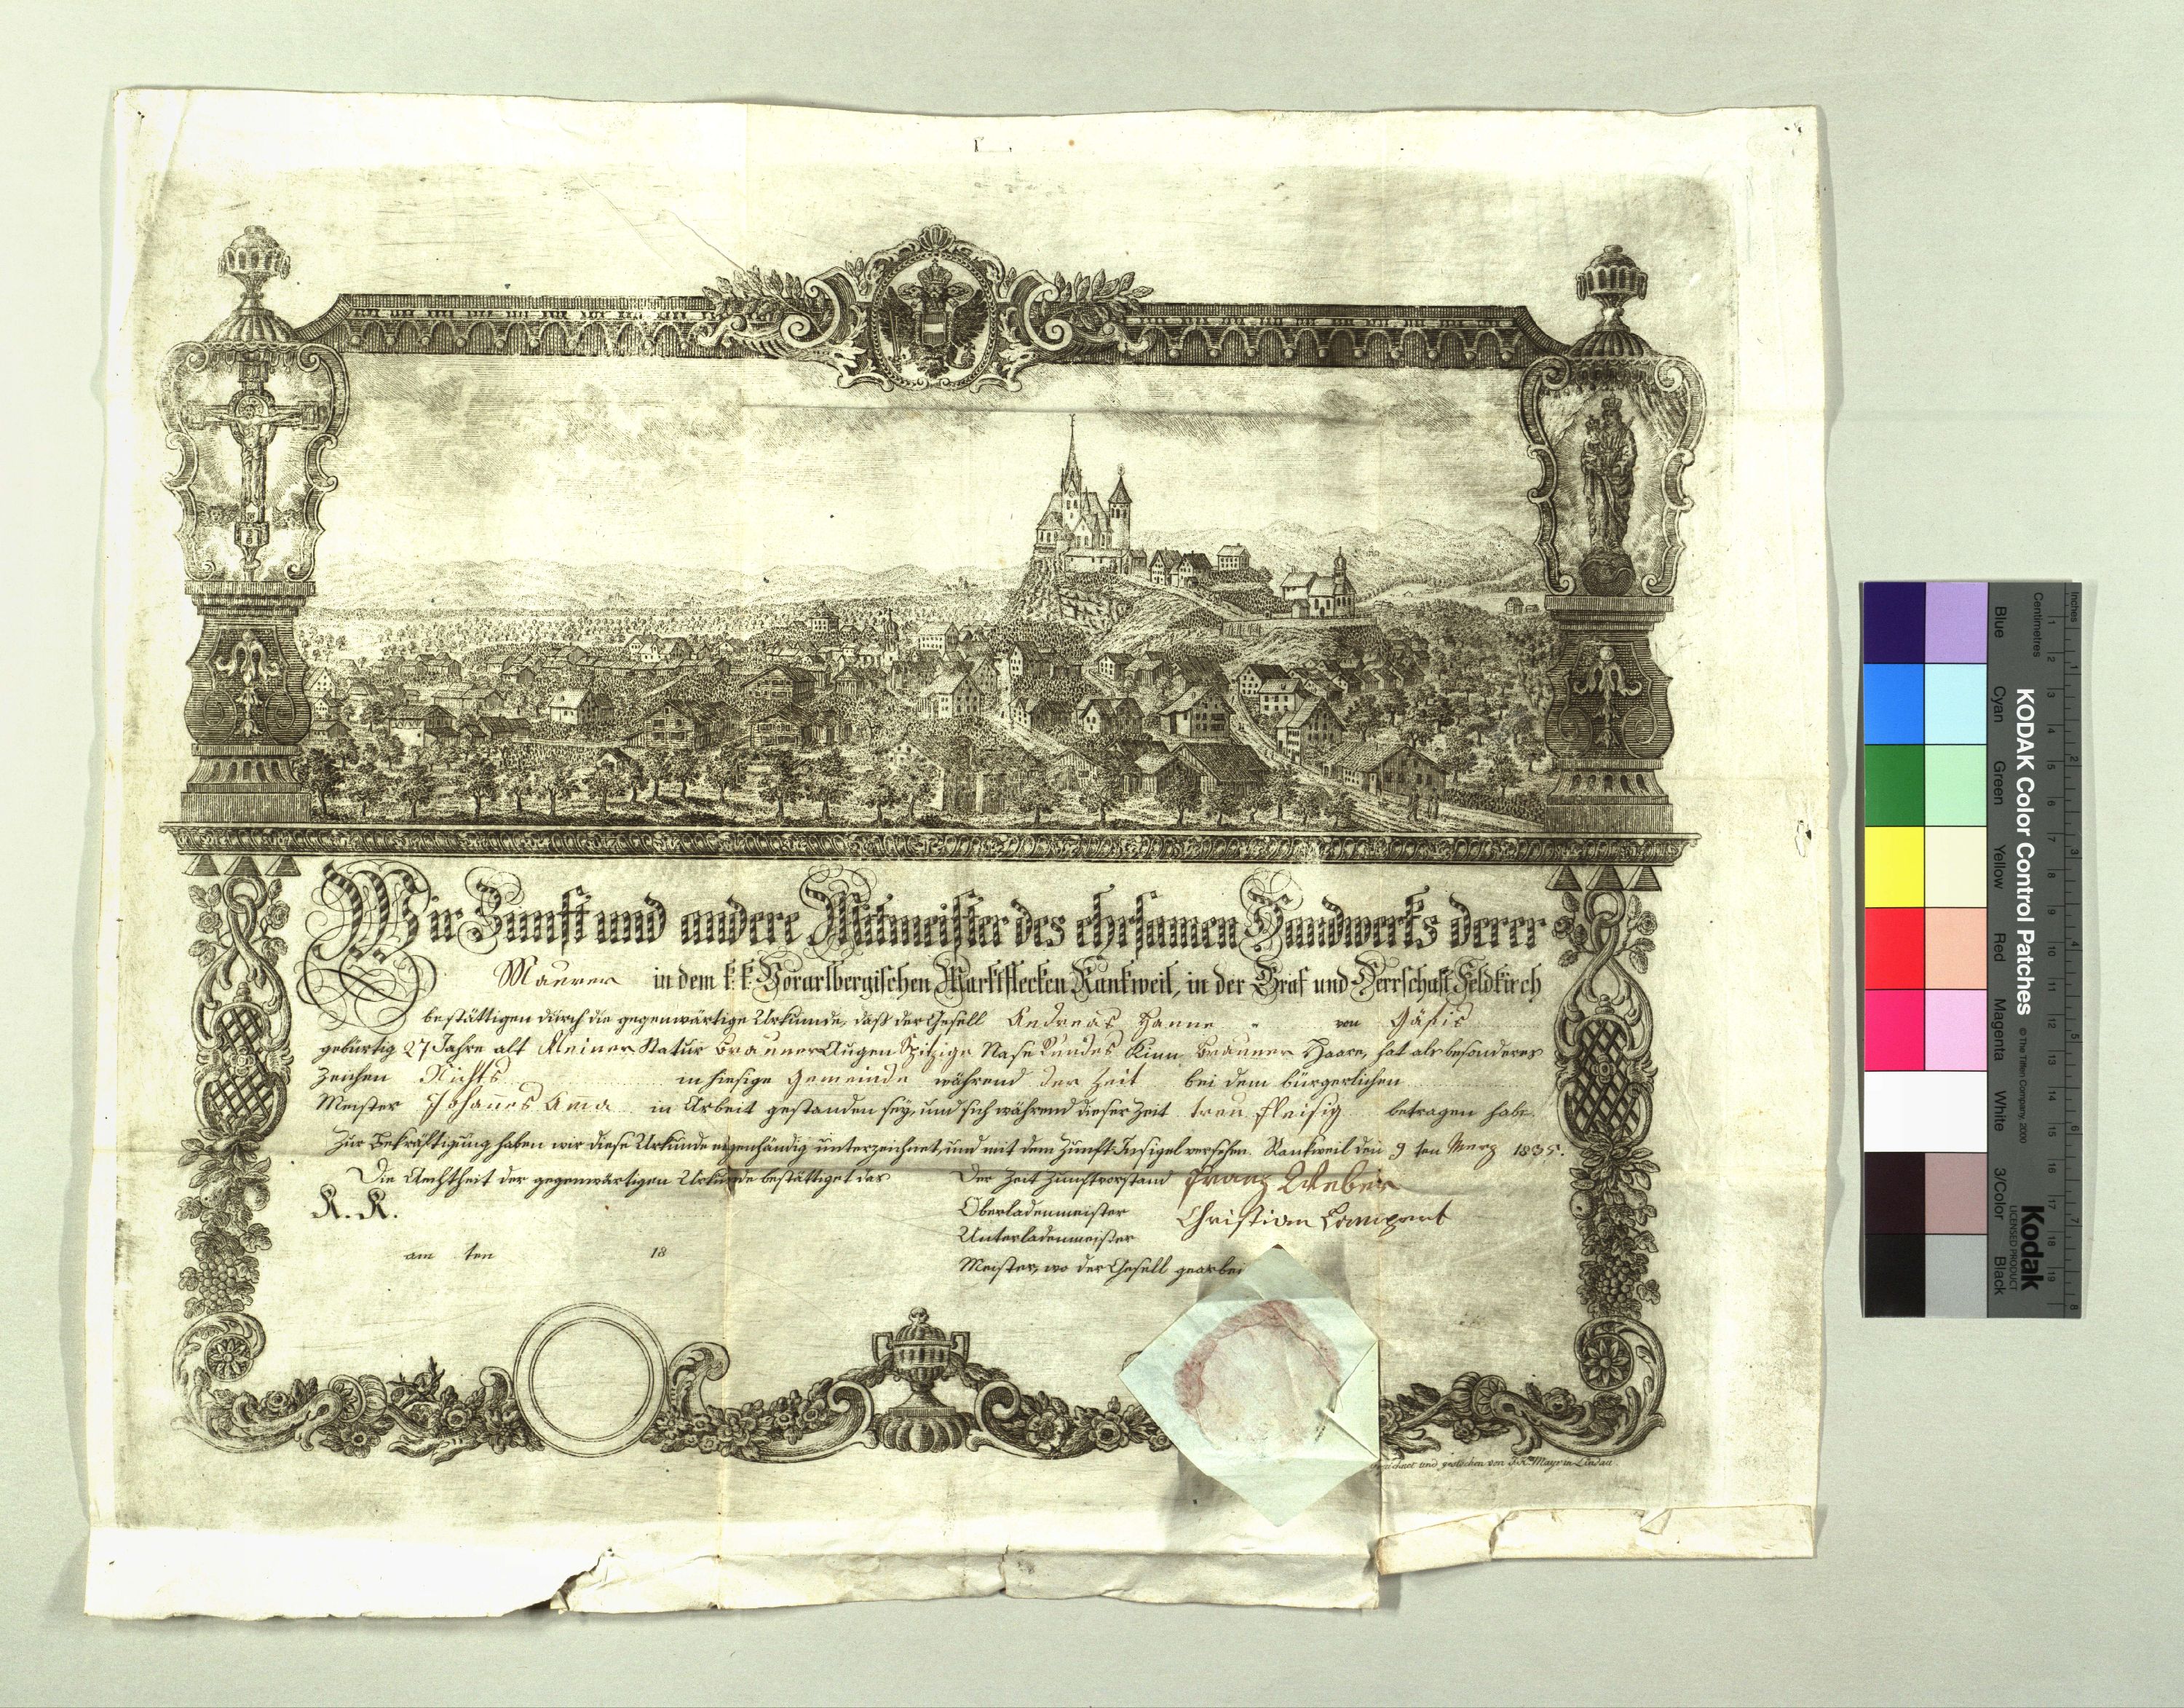 Wir Zunft und andere Mitmeister des ehrsamen Handwerks derer
Maurer in dem k. k. Vorarlbergischen Marktflecken Rankweil, in der Graf und Herrschaft Feldkirch
bestättigen durch die gegenwärtige Urkunde, daß der Gesell Andreas von Gäfis
gebürtig 27 Jahre alt Kleiner Statur Brauner Augen Spitzige Nase Rundes Kinn Brauner Haare, hat als besonderes
Zeichen Nichts in hiesige Gemeinde während der Zeit bei dem bürgerlichen
Meister Johannes in Arbeit gestanden sey, und sich während dieser Zeit treu fleisig betragen habe.
Zur Bekräftigung haben wir diese Urkunde eigenhändig unterzeichnet, und mit dem Zunft Insigel versehen. Rankweil den 9 ten Merz 1835.
Die Aechtheit der gegenwärtigen Urkunde bestättiget das
K. K.
am ten 18
Der Zeit Zunftvorstand Franz Weber
Oberladenmeister Christian Lampert
Unterladenmeister
Meister, wo der Gesell gearbei
gezeichnet und gestochen von Mayr in Lindau
Inches
Centimetres
1 2 3 4 5 6 7 8
1 2 3 4 5 6 7 8 9 10 11 12 13 14 15 16 17 18 19
KODAK Color Control Patches © The Tiffen Company, 2000
Kodak
LICENSED PRODUCT
Blue Cyan Green Yellow Red Magenta White 3/Color Black